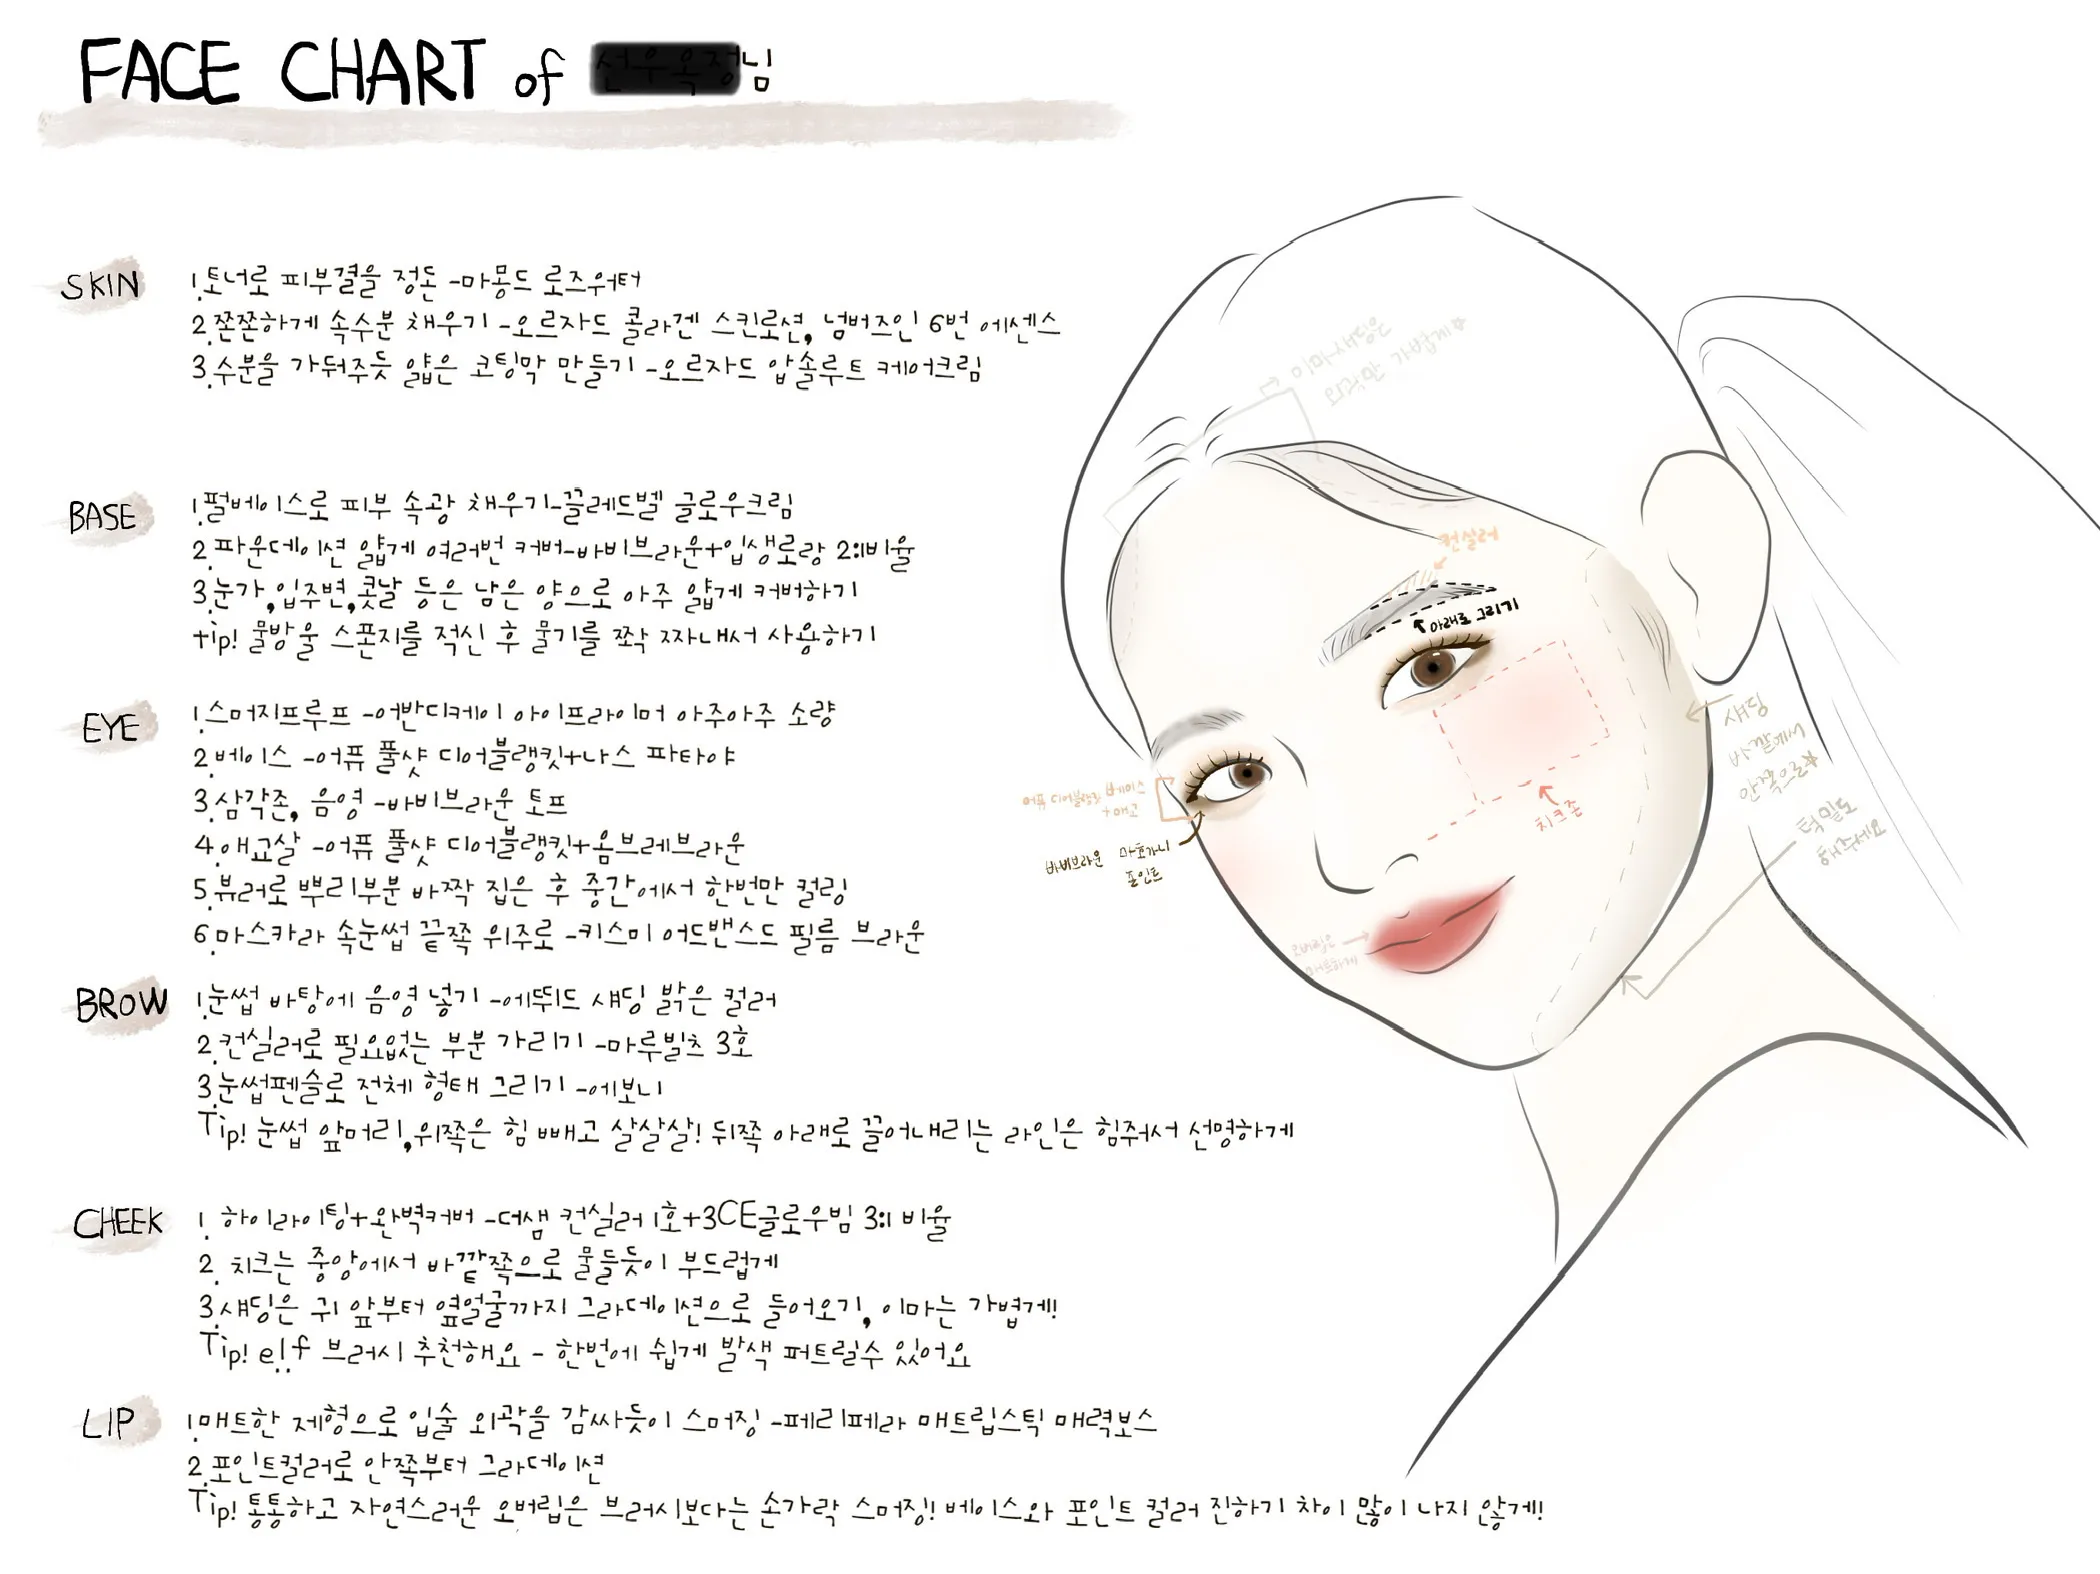 FACE CHART of 님
SKIN
1.토너로 피부결을 정돈 -마몽드 로즈워터
2.쫀쫀하게 속수분 채우기 -오르자드 콜라겐 스킨로션, 넘버즈인 6번 에센스
3.수분을 가둬주듯 얇은 코팅막 만들기 -오르자드 압솔루트 케어크림
BASE
1.펄베이스로 피부 속광 채우기-끌레드벨 글로우크림
2.파운데이션 얇게 여러번 커버-바비브라운+입생로랑 2:1비율
3.눈가,입주변,콧날 등은 남은 양으로 아주 얇게 커버하기
tip! 물방울 스폰지를 적신 후 물기를 쫙 짜내서 사용하기
EYE
1.스머지프루프 -어반디케이 아이프라이머 아주아주 소량
2.베이스 -어퓨 풀샷 디어블랭킷+나스 파타야
3.삼각존, 음영 -바비브라운 토프
4.애교살 -어퓨 풀샷 디어블랭킷+옴브레브라운
5.뷰러로 뿌리부분 바짝 집은 후 중간에서 한번만 컬링
6.마스카라 속눈썹 끝쪽 위주로 -키스미 어드밴스드 필름 브라운
BROW
1.눈썹 바탕에 음영 넣기 -에뛰드 섀딩 밝은 컬러
2.컨실러로 필요없는 부분 가리기 -마루빌츠 3호
3.눈썹펜슬로 전체 형태 그리기 -에보니
Tip! 눈썹 앞머리,위쪽은 힘 빼고 살살살! 뒤쪽 아래로 끌어내리는 라인은 힘줘서 선명하게
CHEEK
1. 하이라이팅+완벽커버 -더샘 컨실러 1호+3CE글로우빔 3:1 비율
2. 치크는 중앙에서 바깥쪽으로 물들듯이 부드럽게
3.섀딩은 귀 앞부터 옆얼굴까지 그라데이션으로 들어오기, 이마는 가볍게!
Tip! elf 브러시 추천해요 - 한번에 쉽게 발색 퍼트릴수 있어요
LIP
1.매트한 제형으로 입술 외곽을 감싸듯이 스머징 -페리페라 매트립스틱 매력보스
2.포인트컬러로 안쪽부터 그라데이션
Tip! 통통하고 자연스러운 오버립은 브러시보다는 손가락 스머징! 베이스와 포인트 컬러 진하기 차이 많이 나지 않게!
컨실러
아래로 그리기
치크존
어퓨 디어블랭킷 베이스
+애교
바비브라운 마호가니
포인트
오버립은
매트하게
섀딩
안쪽으로
턱밑도
해주세요
가볍게